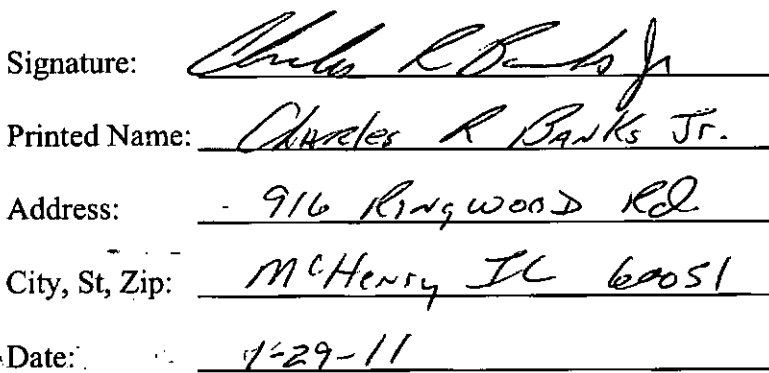 Signature: Charles R Banks Jr
Printed Name: Charles R Banks Jr.
Address: 916 Ringwood Rd
City, St, Zip: McHenry IL 60051
Date: 1-29-11